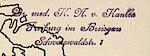 Dr. med. H. A. v. Kanitz
Freiburg im Breisgau
Schwarzwaldstr. 1